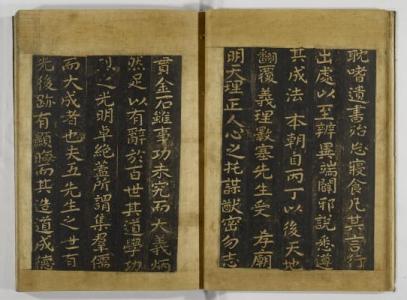 耽嗜遺書殆忘寢食凡其言行
出處以至辨異端闢邪說悉遵
其成法本朝自丙丁以後天地
翻覆義理斁塞先生受 孝廟
明天理正人心之托謀猷密勿志
貫金石雖事功未究而大義炳
然足以有辭於百世其道學功
烈之光明卓絶蓋所謂集羣儒
而大成者也夫五先生之世有
先後跡有顯晦而其造道成德